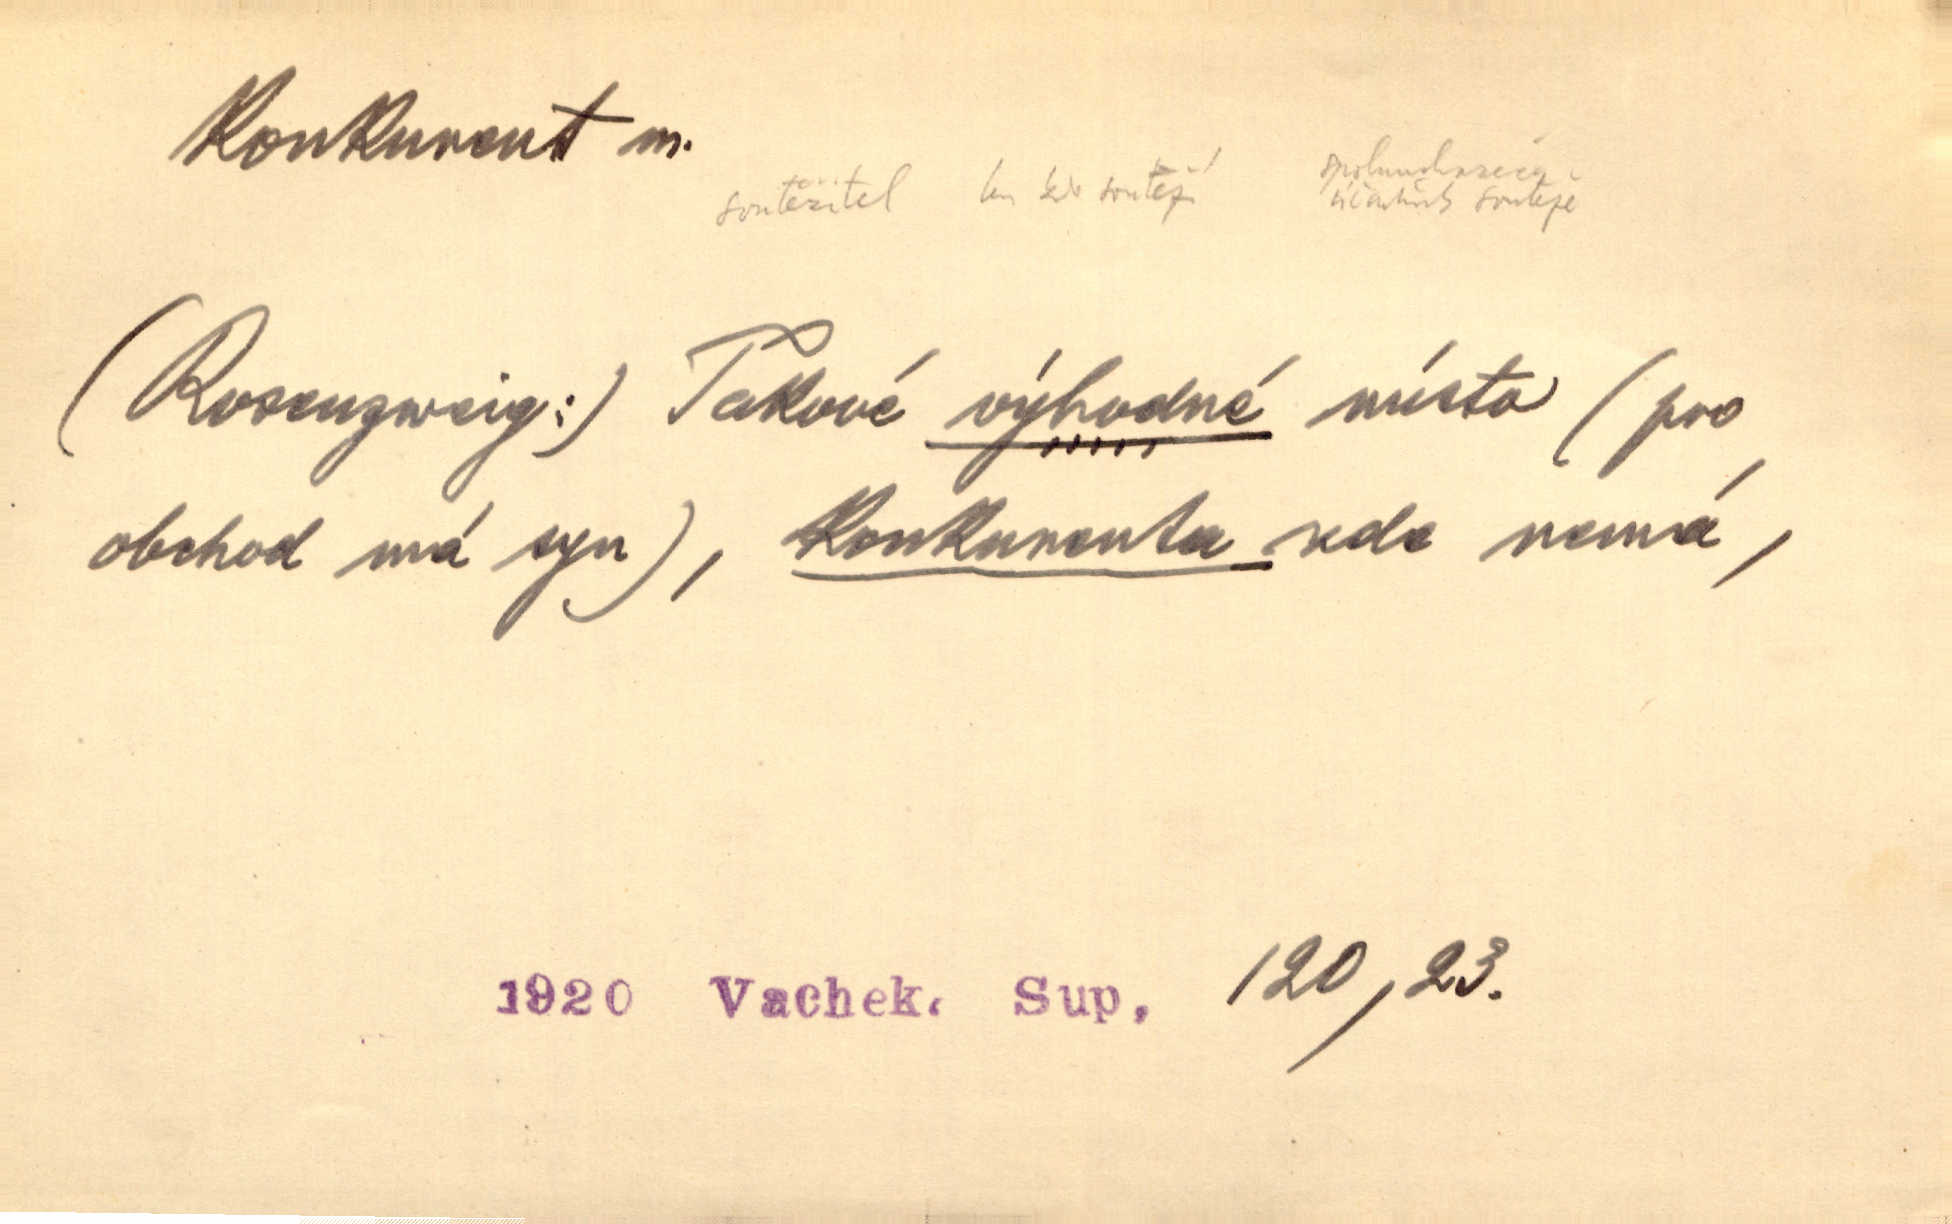 Konkurent m.
soutěžitel ten kdo soutěží
účastník soutěže
(Rosenzweig:) Takové výhodné místo (pro
obchod má syn), Konkurenta zde nemá,
1920 Vachek. Sup. 120, 23.